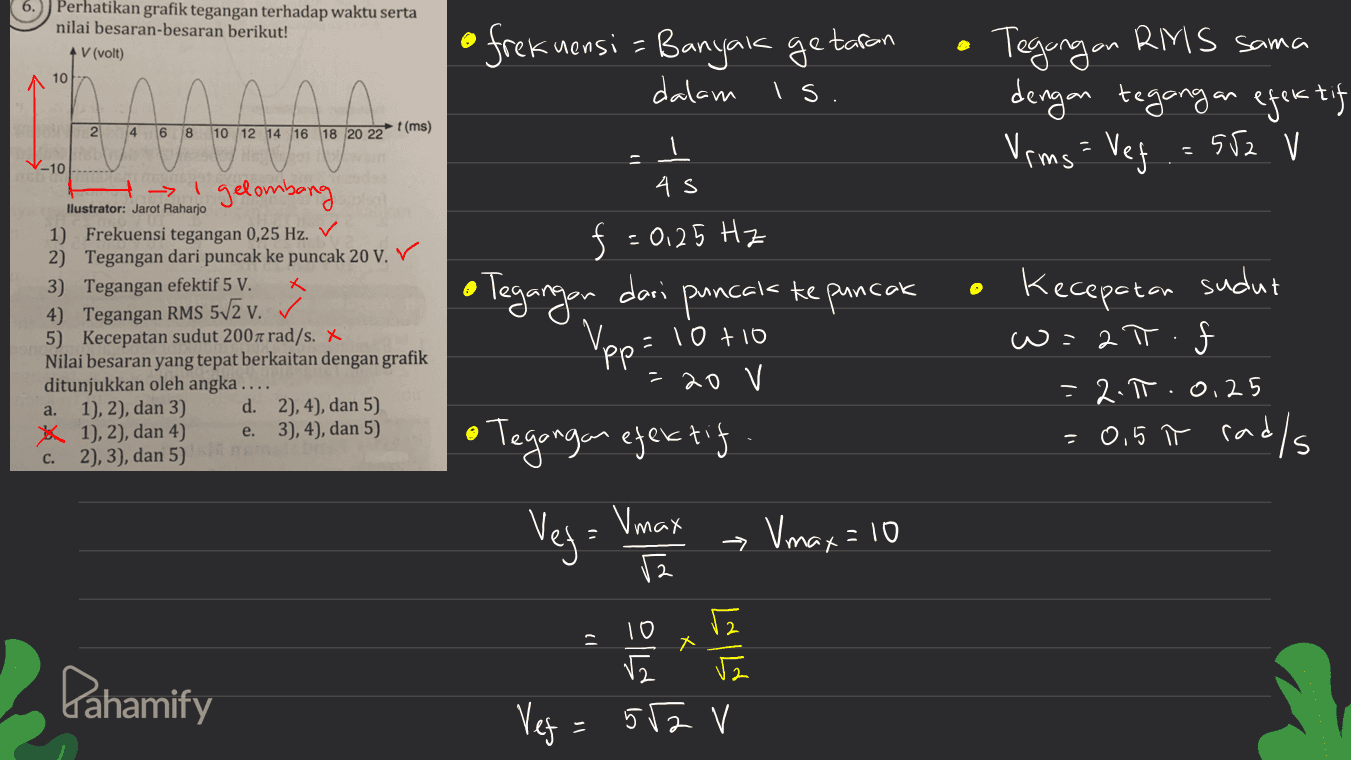 6. Perhatikan grafik tegangan terhadap waktu serta
nilai besaran-besaran berikut!
V (volt)
10
2 4 6 8 10 12 14 16 18 20 22 t (ms)
-10
→ 1 gelombang
Ilustrator: Jarot Raharjo
1) Frekuensi tegangan 0,25 Hz. ✓
2) Tegangan dari puncak ke puncak 20 V. ✓
3) Tegangan efektif 5 V. x
4) Tegangan RMS 5√2 V. ✓
5) Kecepatan sudut 200π rad/s. x
Nilai besaran yang tepat berkaitan dengan grafik
ditunjukkan oleh angka . . . .
a. 1), 2), dan 3)
b. 1), 2), dan 4)
c. 2), 3), dan 5)
d. 2), 4), dan 5)
e. 3), 4), dan 5)
• frekuensi = Banyak getaran
dalam 1 s.
= 1
4 s
f = 0,25 Hz
• Tegangan dari puncak ke puncak
Vpp = 10 + 10
= 20 V
• Tegangan efektif.
Vef = Vmax → Vmax = 10
√2
= 10 x √2
√2 √2
Vef = 5√2 V
• Tegangan RMS sama
dengan tegangan efektif
Vrms = Vef = 5√2 V
• Kecepatan sudut
ω = 2π . f
= 2.π. 0,25
= 0,5 π rad/s
Pahamify